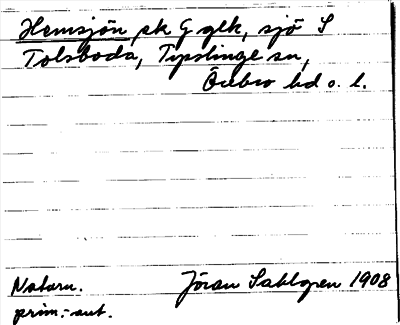 Hemsjön sk G glk, sjö S
Tolsboda, Tysslinge sn,
Örebro hd o. l.
Naturn.
Jöran Sahlgren 1908
prim.-ant.